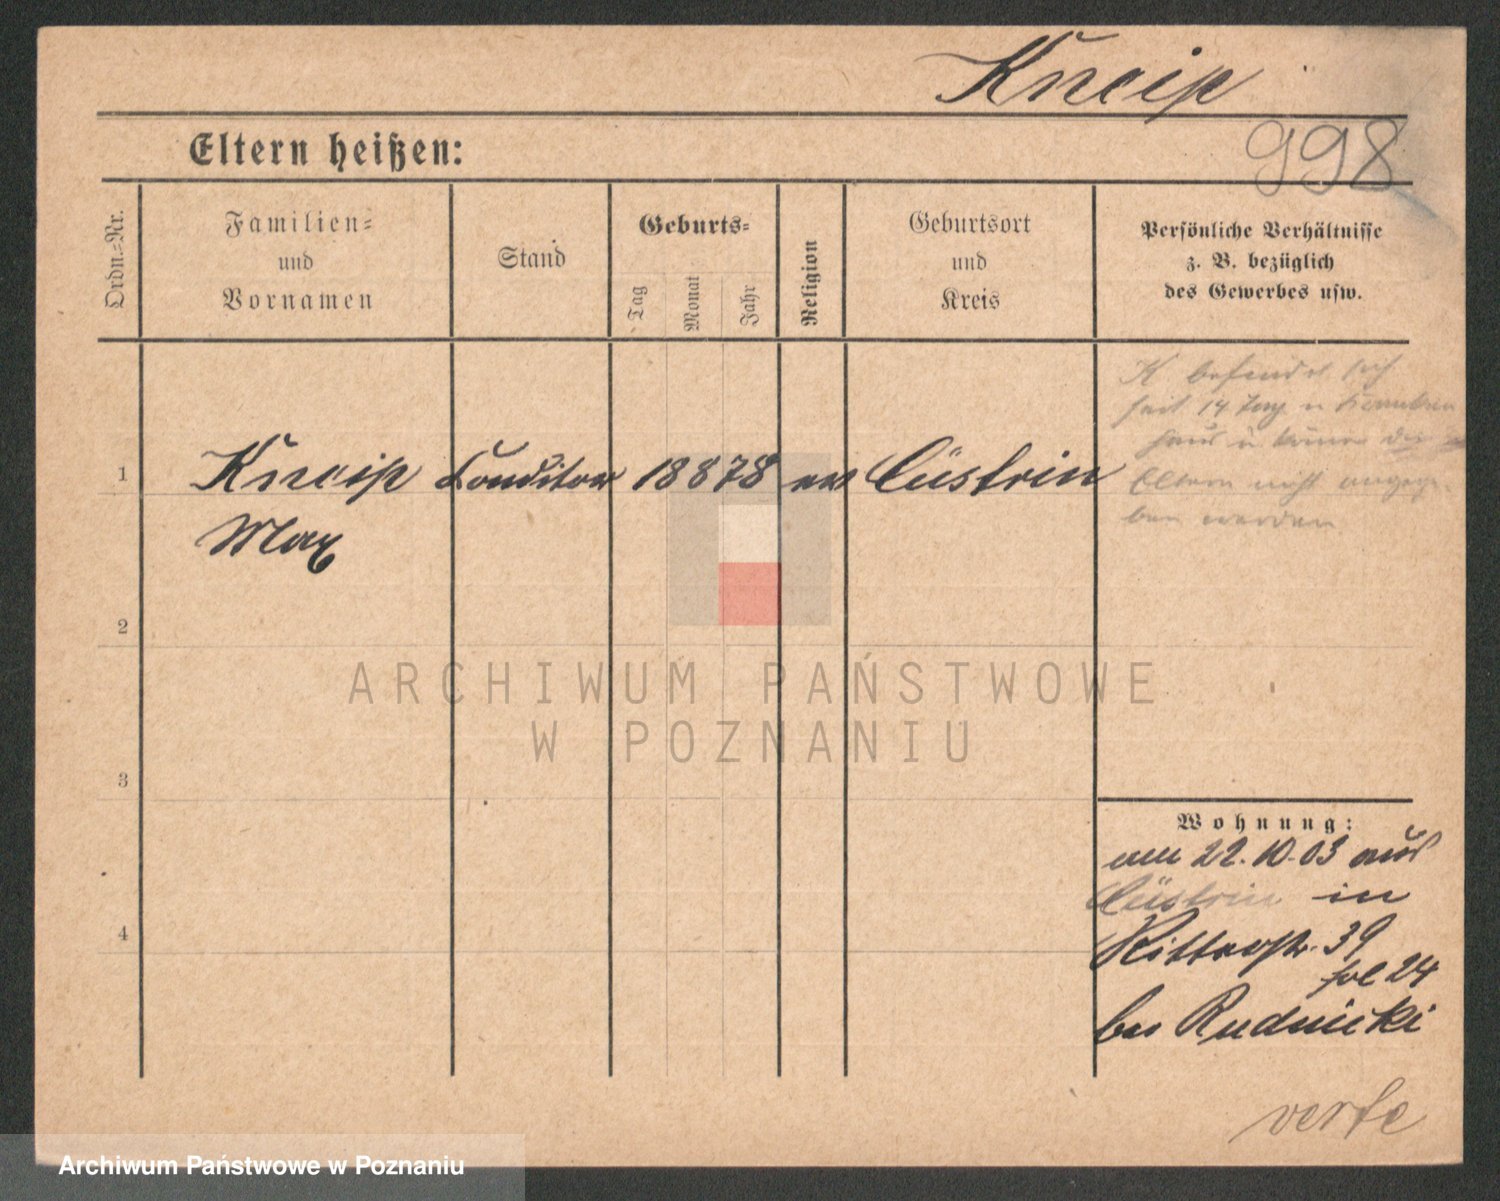 Kneip
998
Eltern heißen:
Ordn.=Nr.
Familien=
und
Vornamen
Stand
Geburts=
Tag
Monat
Jahr
Religion
Geburtsort
und
Kreis
Persönliche Verhältnisse
z. B. bezüglich
des Gewerbes usw.
K befindet sich
seit 14
Eltern nicht angege-
ben werden
1
Kneip Conditor 18 8 78 ev Cüstrin
Max
2
3
4
Wohnung:
am 22.10.03 aus
Cüstrin in
Ritterstr. 39
24
bei Rudnicki
verte
ARCHIWUM PAŃSTWOWE
W POZNANIU
Archiwum Państwowe w Poznaniu